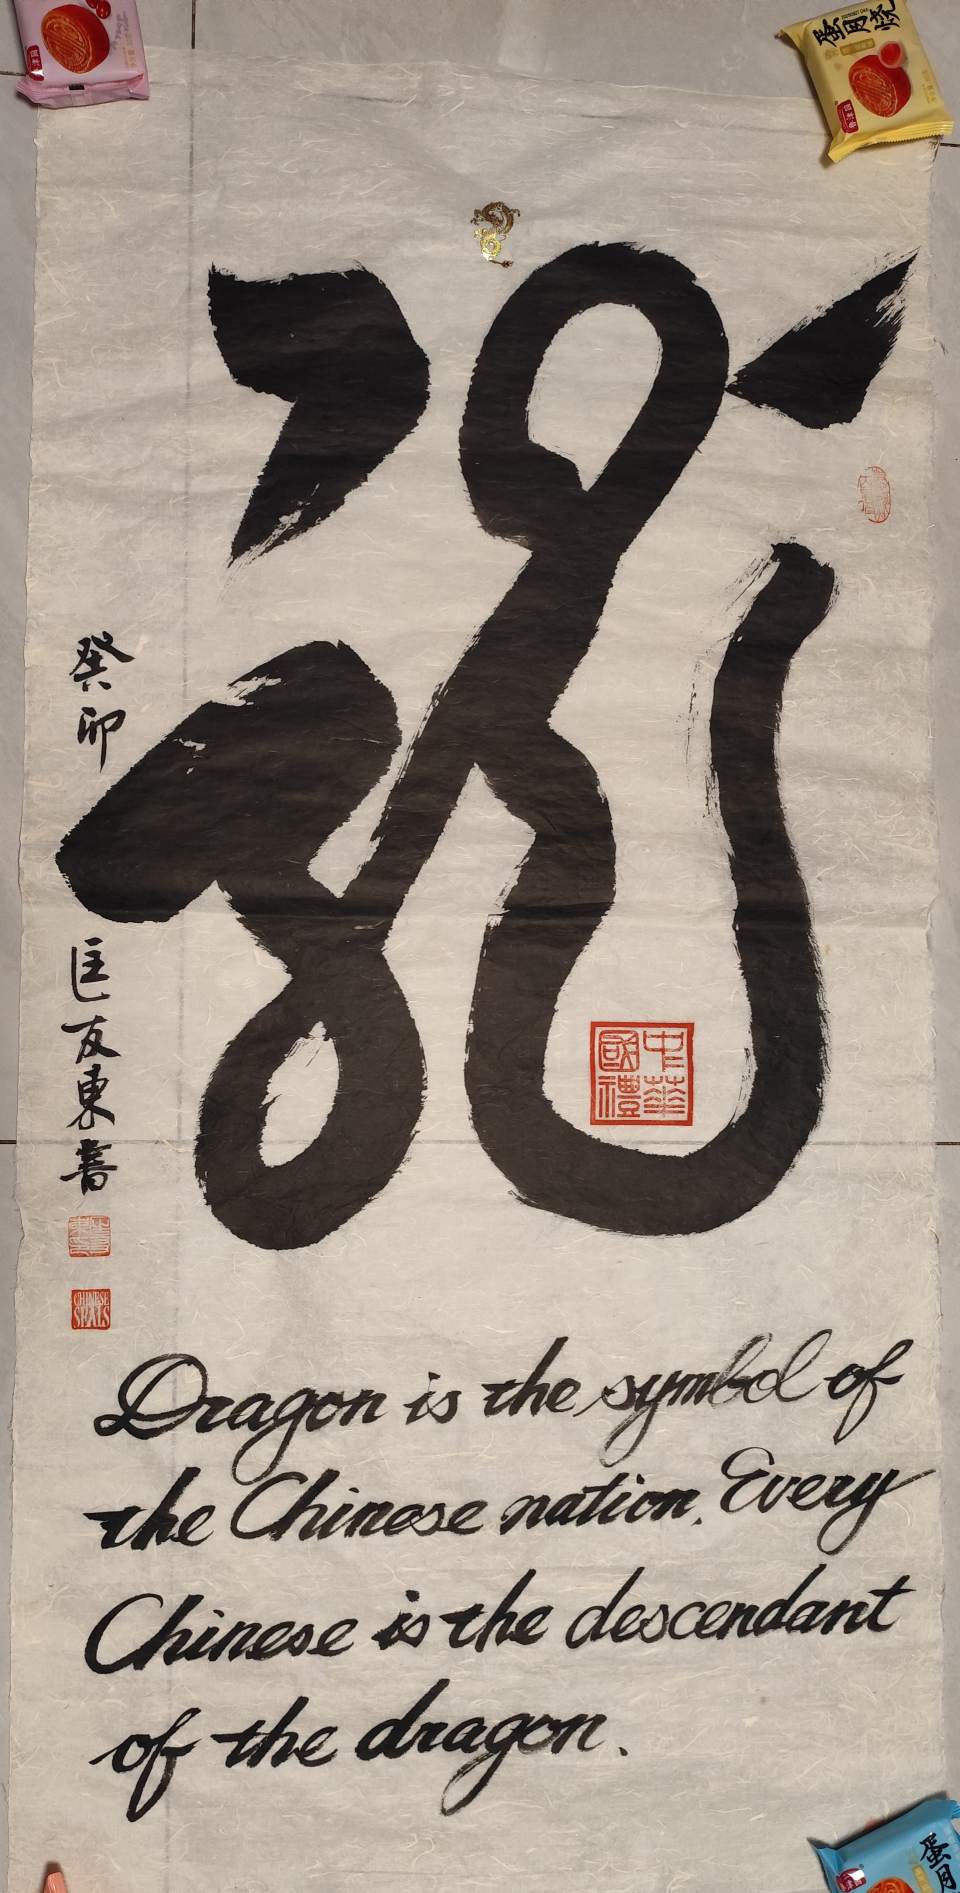 蛋月烧
龙
癸卯
匡友東書
中華國禮
CHINESE SEALS
Dragon is the symbol of
the Chinese nation. Every
Chinese is the descendant
of the dragon.
蛋月